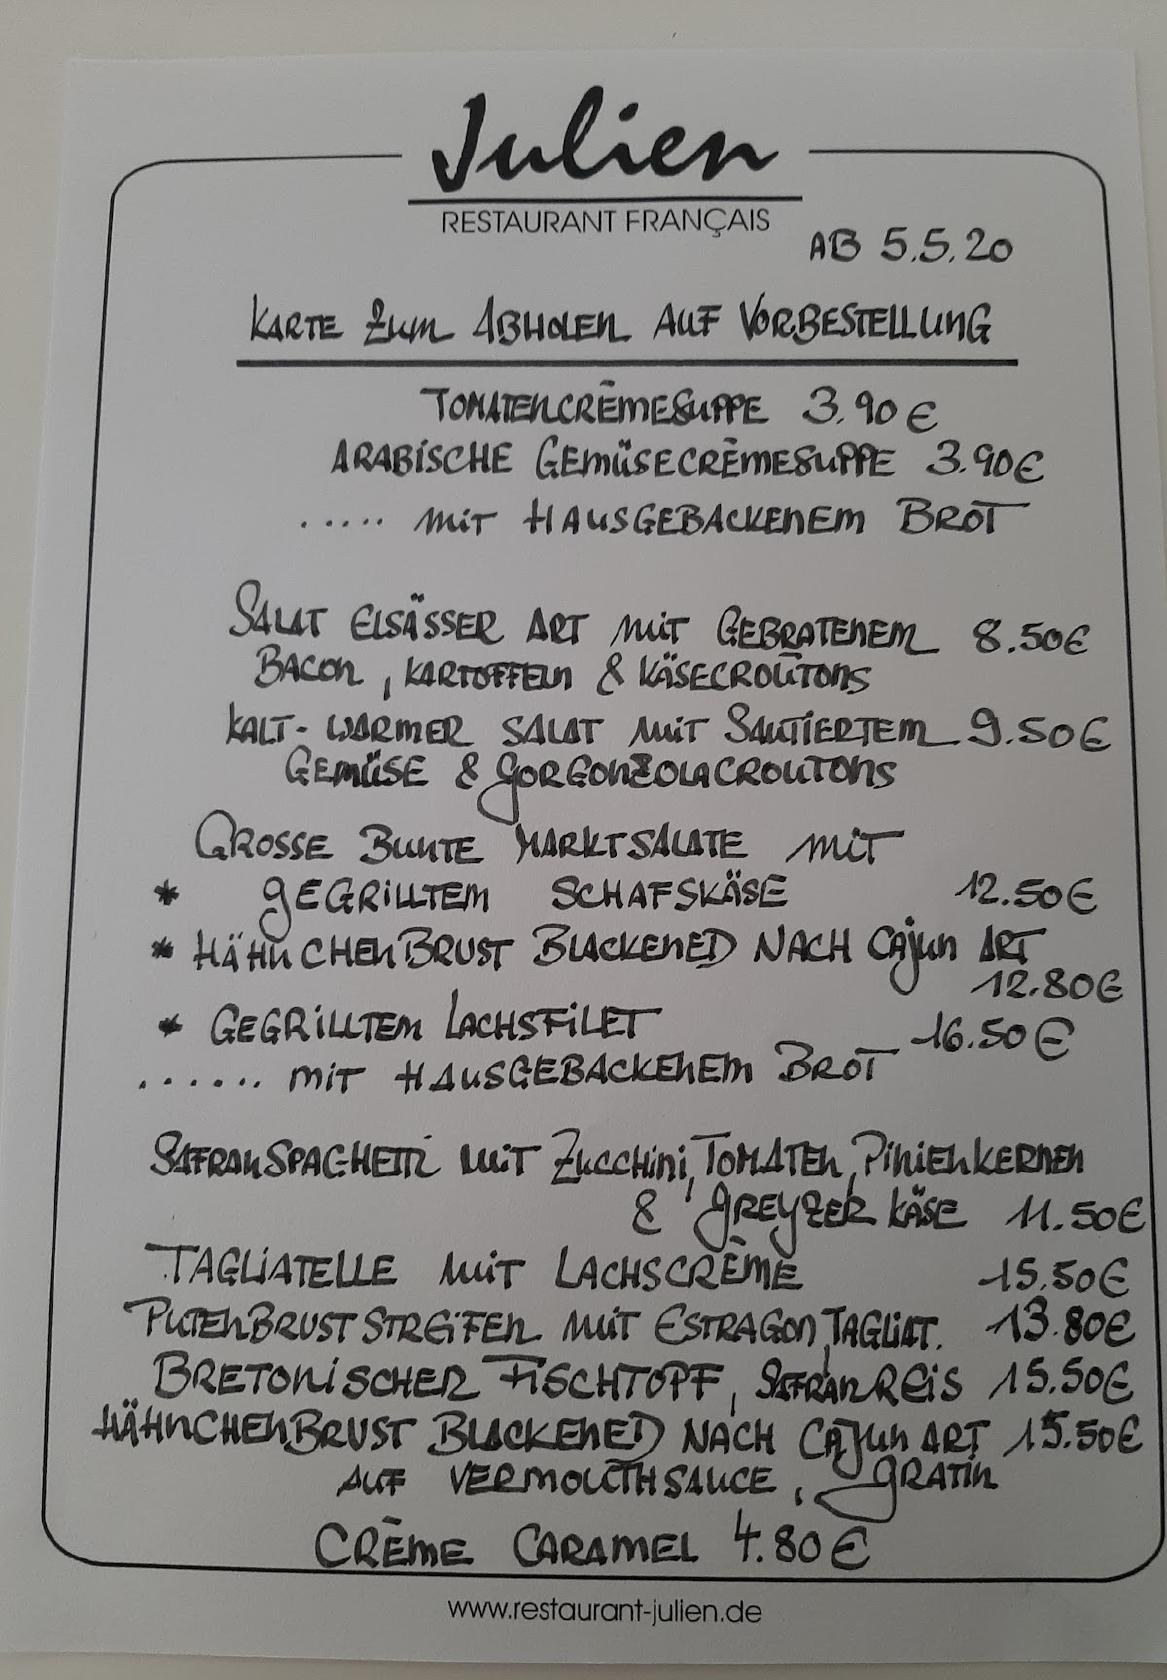 Julien
RESTAURANT FRANÇAIS
AB 5.5.20
KARTE ZUM ABHOLEN AUF VORBESTELLUNG
TOMATENCRÈMESUPPE 3.90€
ARABISCHE GEMÜSECRÈMESUPPE 3.90€
..... MIT HAUSGEBACKENEM BROT
SALAT ELSÄSSER ART MIT GEBRATENEM 8.50€
BACON, KARTOFFELN & KÄSECROÛTONS
KALT-WARMER SALAT MIT SAUTIERTEM 9.50€
GEMÜSE & GORGONZOLACROUTONS
GROSSE BUNTE MARKTSALATE MIT
* GEGRILLTEM SCHAFSKÄSE 12.50€
* HÄHNCHENBRUST BLACKENED NACH CAJUN ART
12.80€
* GEGRILLTEM LACHSFILET 16.50€
...... MIT HAUSGEBACKENEM BROT
SAFRANSPAGHETTI MIT ZUCCHINI, TOMATEN, PINIENKERNEN
& GREYZER KÄSE 11.50€
TAGLIATELLE MIT LACHSCRÈME 15.50€
PUTENBRUSTSTREIFEN MIT ESTRAGON, TAGLIAT. 13.80€
BRETONISCHER FISCHTOPF, SAFRANREIS 15.50€
HÄHNCHENBRUST BLACKENED NACH CAJUN ART 15.50€
AUF VERMOUTHSAUCE, GRATIN
CRÈME CARAMEL 4.80€
www.restaurant-julien.de